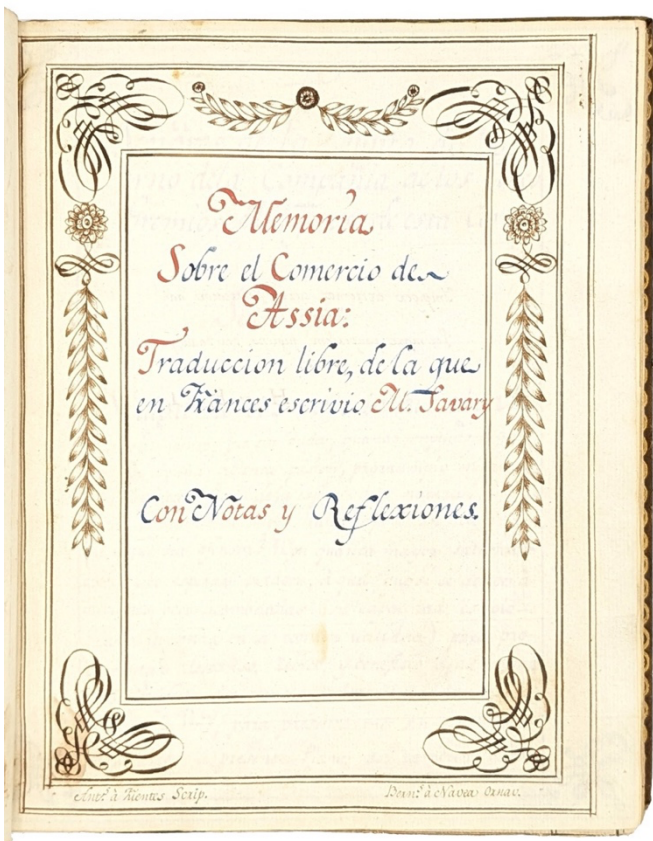 Memoria
Sobre el Comercio de
Assia:
Traduccion libre, de la que
en Frances escrivio M. Savary
Con Notas y Reflexiones.
Ant.º à Fientes Scrip.
Bern.º à Navea Ornav.